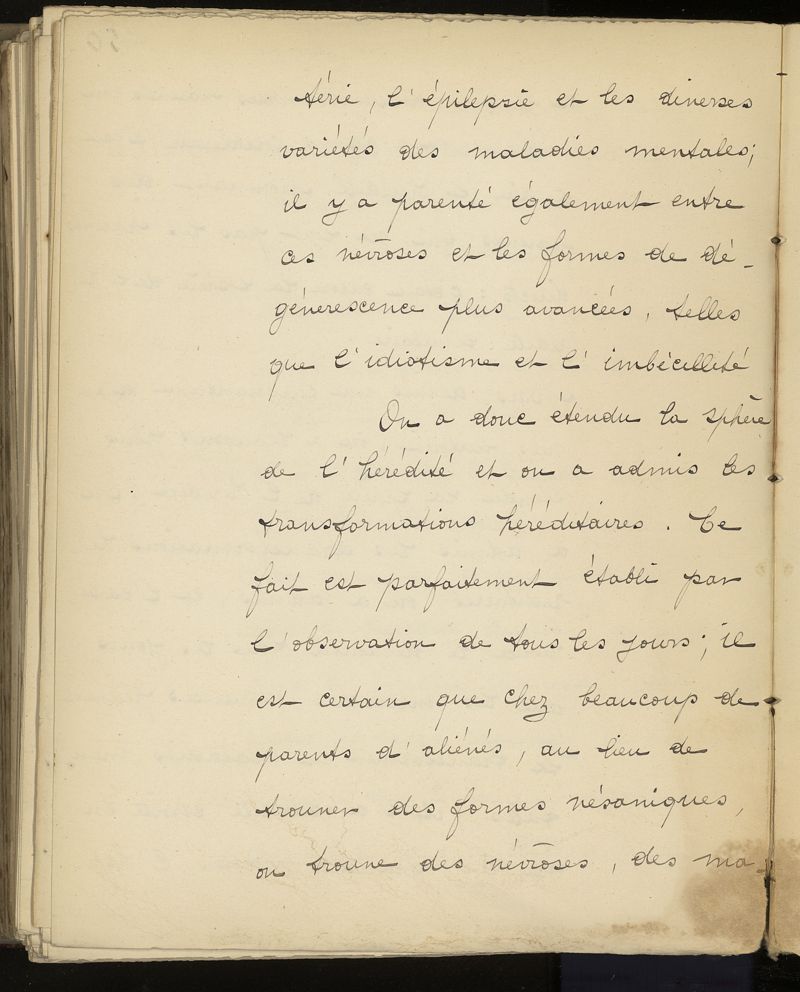 térie, l'épilepsie et les diverses
variétés des maladies mentales;
il y a parenté également entre
ces névroses et les formes de dé-
génerescence plus avancées, telles
que l'idiotisme et l'imbécillité
On a donc étendu la sphère
de l'hérédité et on a admis les
transformations héréditaires. Ce
fait est parfaitement établi par
l'observation de tous les jours; il
est certain que chez beaucoup de
parents d'aliénés, au lieu de
trouver des formes vésaniques,
on trouve des névroses, des ma